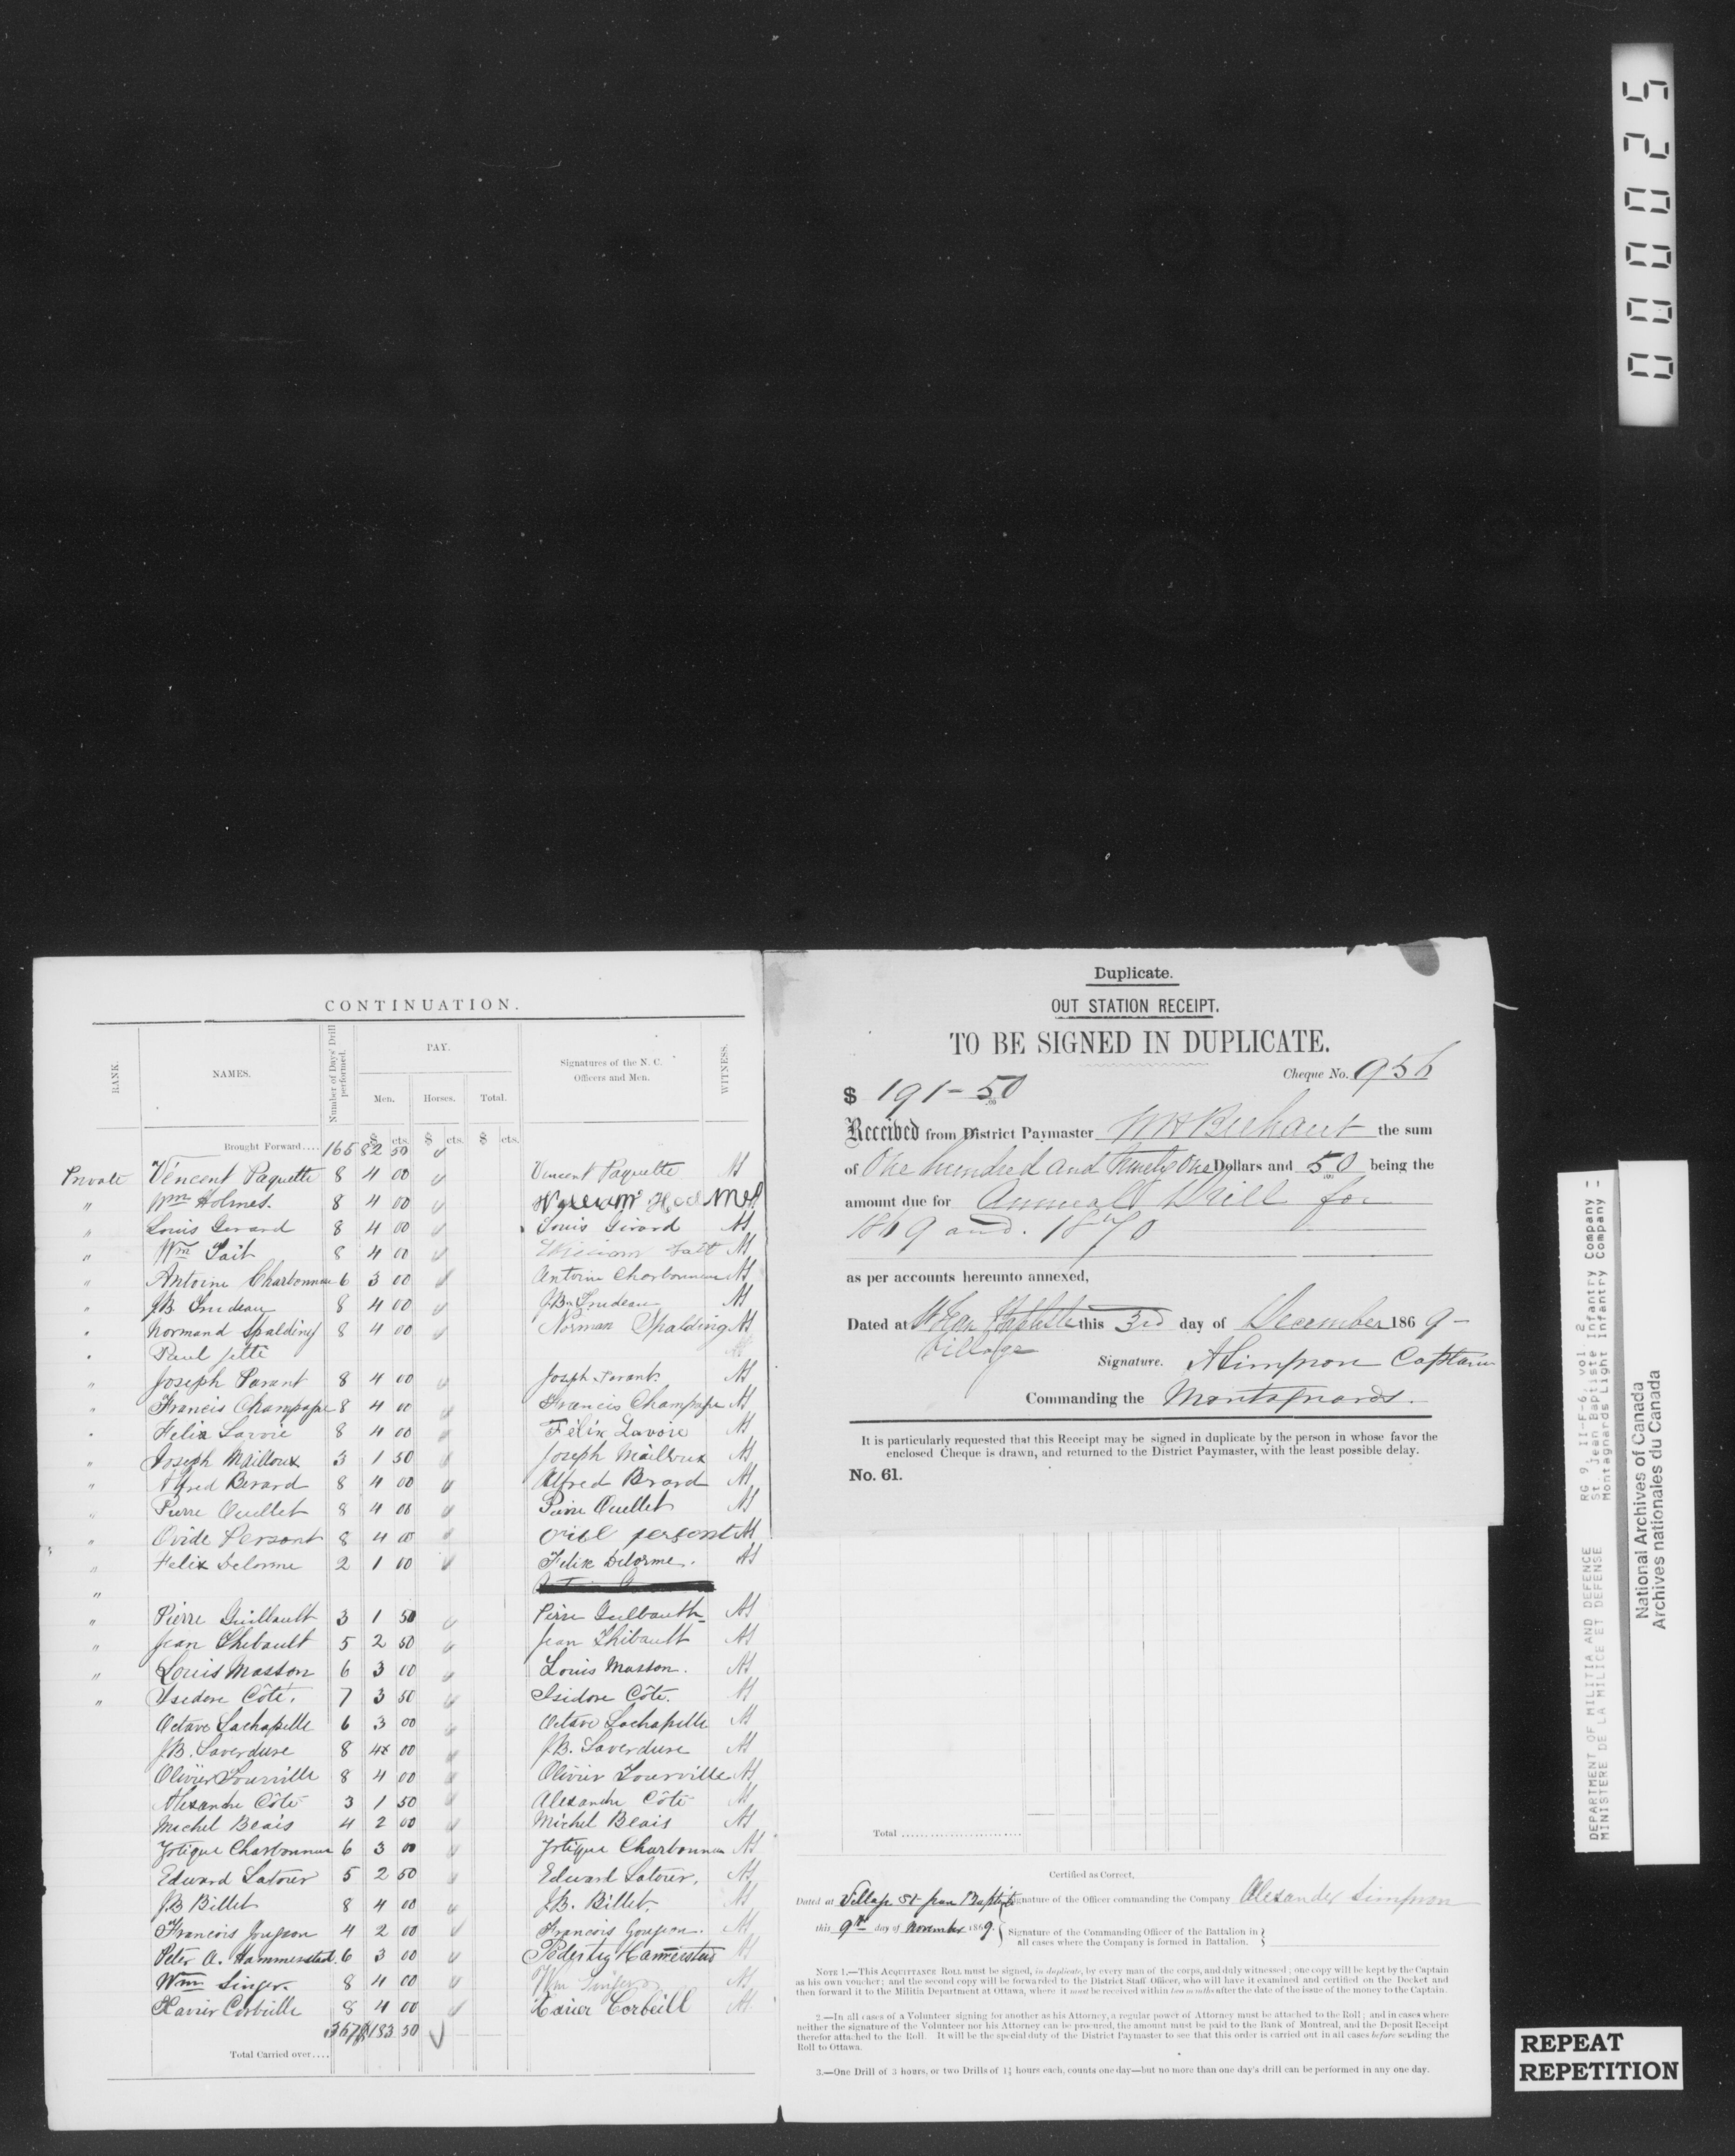 000025
CONTINUATION.
RANK.
NAMES.
Number of Days' Drill performed.
PAY.
Men. Horses. Total.
Signatures of the N. C. Officers and Men.
WITNESS.
$ cts. $ cts. $ cts.
Brought Forward.... 165 82 50
Private Vencent Paquette 8 4 00 Vincent Paquette AS
" Wm Holmes. 8 4 00
" Louis Girard 8 4 00 Louis Girard AS
" Wm Tait 8 4 00 William Tait AS
" Antoine Charbonneau 6 3 00 Antoine Charbonneau AS
" JB Trudeau 8 4 00 J.Bte Trudeau AS
" Normand Spalding 8 4 00 Norman Spalding AS
" Paul Jetté
" Joseph Parant 8 4 00 Joseph Parant. AS
" Francis Champagne 8 4 00 Francis Champagne AS
" Felix Lavoie 8 4 00 Félix Lavoie AS
" Joseph Mailloux 3 1 50 Joseph Mailloux AS
" Alfred Berard 8 4 00 Alfred Berard AS
" Pierre Ouellet 8 4 00 Pierre Ouellet AS
" Ovide Persont 8 4 00 persont AS
" Felix Delorme 2 1 00 Felix Delorme. AS
"
" Pierre Guilbault 3 1 50 Pierre Guilbault AS
" Jean Thibault 5 2 50 Jean Thibault AS
" Louis Masson 6 3 00 Louis Masson. AS
" Isedore Côté. 7 3 50 Isidore Côté. AS
Octave Lachapelle 6 3 00 Octave Lachapelle AS
J.B. Laverdure 8 4 00 J.B. Laverdure AS
Olivier Tourville 8 4 00 Olivier Tourville AS
Alexandre Côté 3 1 50 Alexandre Côté AS
Michel Blais 4 2 00 Michel Blais AS
Charbonneau 6 3 00 Charbonneau AS
Edward Latour 5 2 50 Edward Latour. AS
J.B Billet 8 4 00 J.B. Billet. AS
Francois Goujeon 4 2 00 Francois Goujeon. AS
Peter A. Hammerstad 6 3 00 AS
Wm Singer. 8 4 00 Wm Singer AS
Xavier Corbeille 8 4 00 Xavier Corbeill AS
367 183 50
Total Carried over....
Duplicate.
OUT STATION RECEIPT.
TO BE SIGNED IN DUPLICATE.
Cheque No. 956
$ 191-50
Received from District Paymaster the sum
of One hundred and Ninety One Dollars and 50 being the
amount due for Annual Drill for
1869 and. 1870
as per accounts hereunto annexed,
Dated at St Jean Baptiste this 3rd day of December 1869-
Village
Signature. ASimpson Captain
Commanding the Montagnards.
It is particularly requested that this Receipt may be signed in duplicate by the person in whose favor the
enclosed Cheque is drawn, and returned to the District Paymaster, with the least possible delay.
No. 61.
Total ........................
Certified as Correct,
Dated at Village St Jean Baptiste Signature of the Officer commanding the Company Alexander Simpson
this 9th day of November 1869. Signature of the Commanding Officer of the Battalion in
all cases where the Company is formed in Battalion.
NOTE 1.—This ACQUITTANCE ROLL must be signed, in duplicate, by every man of the corps, and duly witnessed; one copy will be kept by the Captain
as his own voucher; and the second copy will be forwarded to the District Staff Officer, who will have it examined and certified on the Docket and
then forward it to the Militia Department at Ottawa, where it must be received within two months after the date of the issue of the money to the Captain.
2.—In all cases of a Volunteer signing for another as his Attorney, a regular power of Attorney must be attached to the Roll; and in cases where
neither the signature of the Volunteer nor his Attorney can be procured, the amount must be paid to the Bank of Montreal, and the Deposit Receipt
therefor attached to the Roll. It will be the special duty of the District Paymaster to see that this order is carried out in all cases before sending the
Roll to Ottawa.
3.—One Drill of 3 hours, or two Drills of 1½ hours each, counts one day—but no more than one day's drill can be performed in any one day.
DEPARTMENT OF MILITIA AND DEFENCE
MINISTERE DE LA MILICE ET DEFENSE
RG 9, II-F-6, vol 2
St. Jean Baptiste Infantry Company -
Montagnards Light Infantry Company -
National Archives of Canada
Archives nationales du Canada
REPEAT
REPETITION